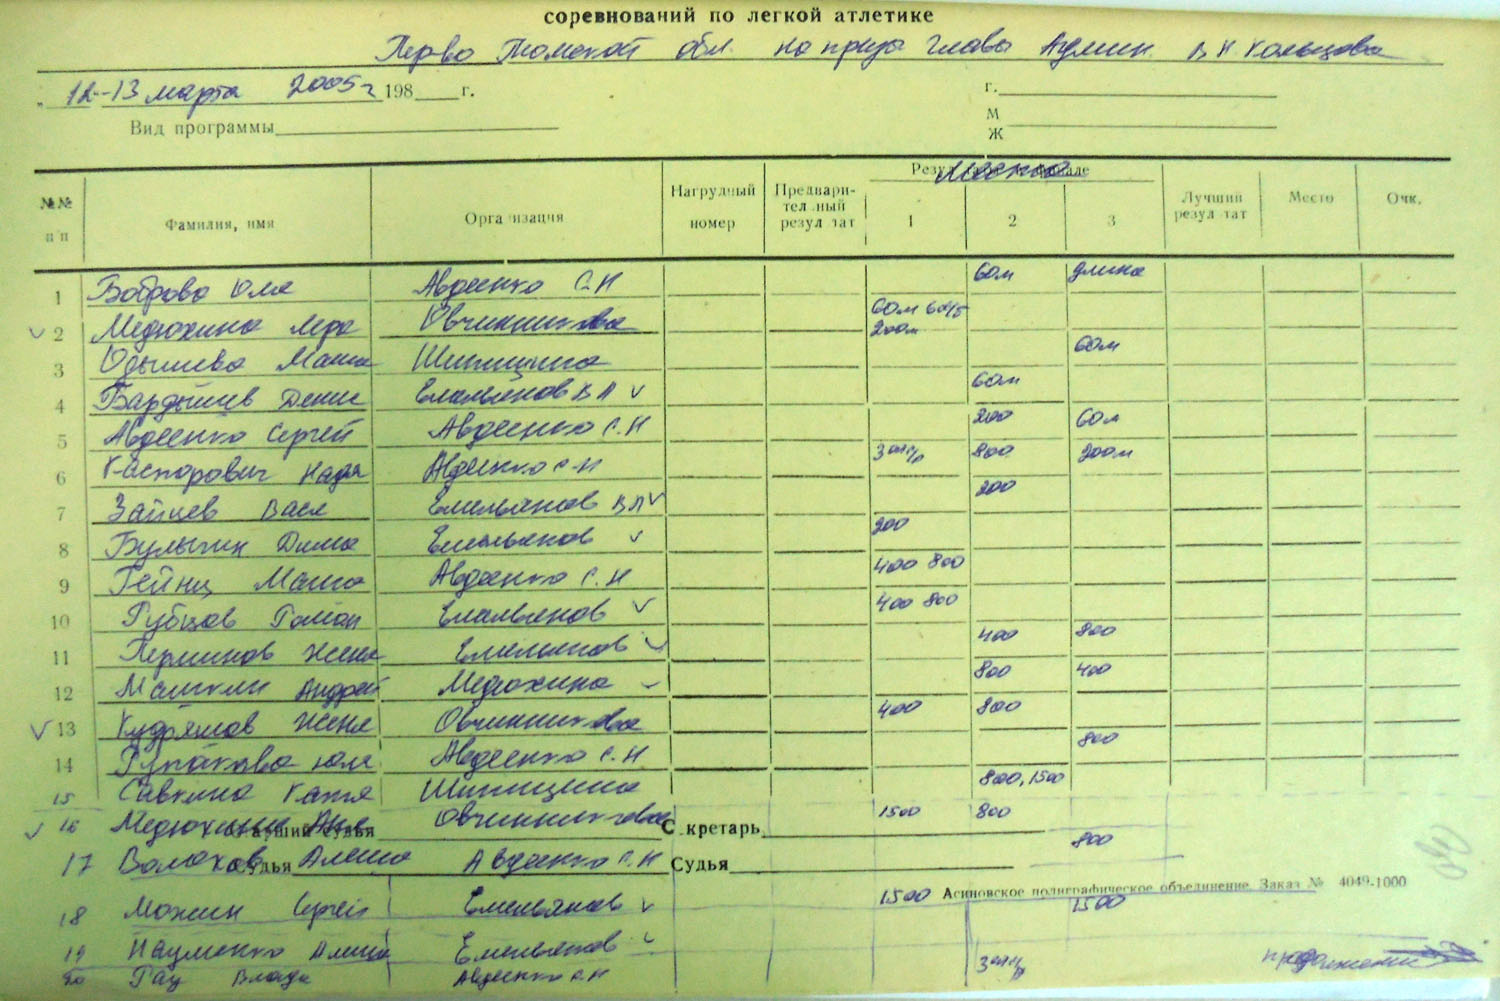 соревнований по легкой атлетике
Перво Томской обл. на приз главы Админ. В Н. Кольцова
" 12-13 марта 2005г 198 г. г.
Вид программы М
Ж
№№ п/п Фамилия, имя Организация Нагрудный номер Предварительный результат 1 2 3 Лучший результат Место Очк.
места
1 Боброва Юля Авдеенко С Н 60м длина
2 Медюхина Лера Овчинникова 60м 60м/б 200м
3 Одышева Маша Шипицина 60м
4 Бардышев Денис Емельянов В Л 60м
5 Авдеенко Сергей Авдеенко С.Н 200 60м
6 Каспорович Надя Авдеенко С.Н 800 200м
7 Зайцев Вася Емельянов В Л 200
8 Булыгин Дима Емельянов 200
9 Гейнц Маша Авдеенко С.Н 400 800
10 Рубцов Роман Емельянов 400 800
11 Перминов Женя Емельянов 400 800
12 Андрей Медюхина 800 400
13 Кудряшов Женя Овчинникова 400 800
14 Юля Авдеенко С.Н 800
15 Савкина Катя Шипицина 800, 1500
16 Медюхина Аня Овчинникова 1500 800
Старший судья Секретарь
17 Алеша Авдеенко С.Н 800
Судья Судья
Асиновское полиграфическое объединение. Заказ № 4049-1000
18 Можин Сергей Емельянов 1500 1500
19 Науменко Емельянов
20 Гау Влада Авдеенко С.Н